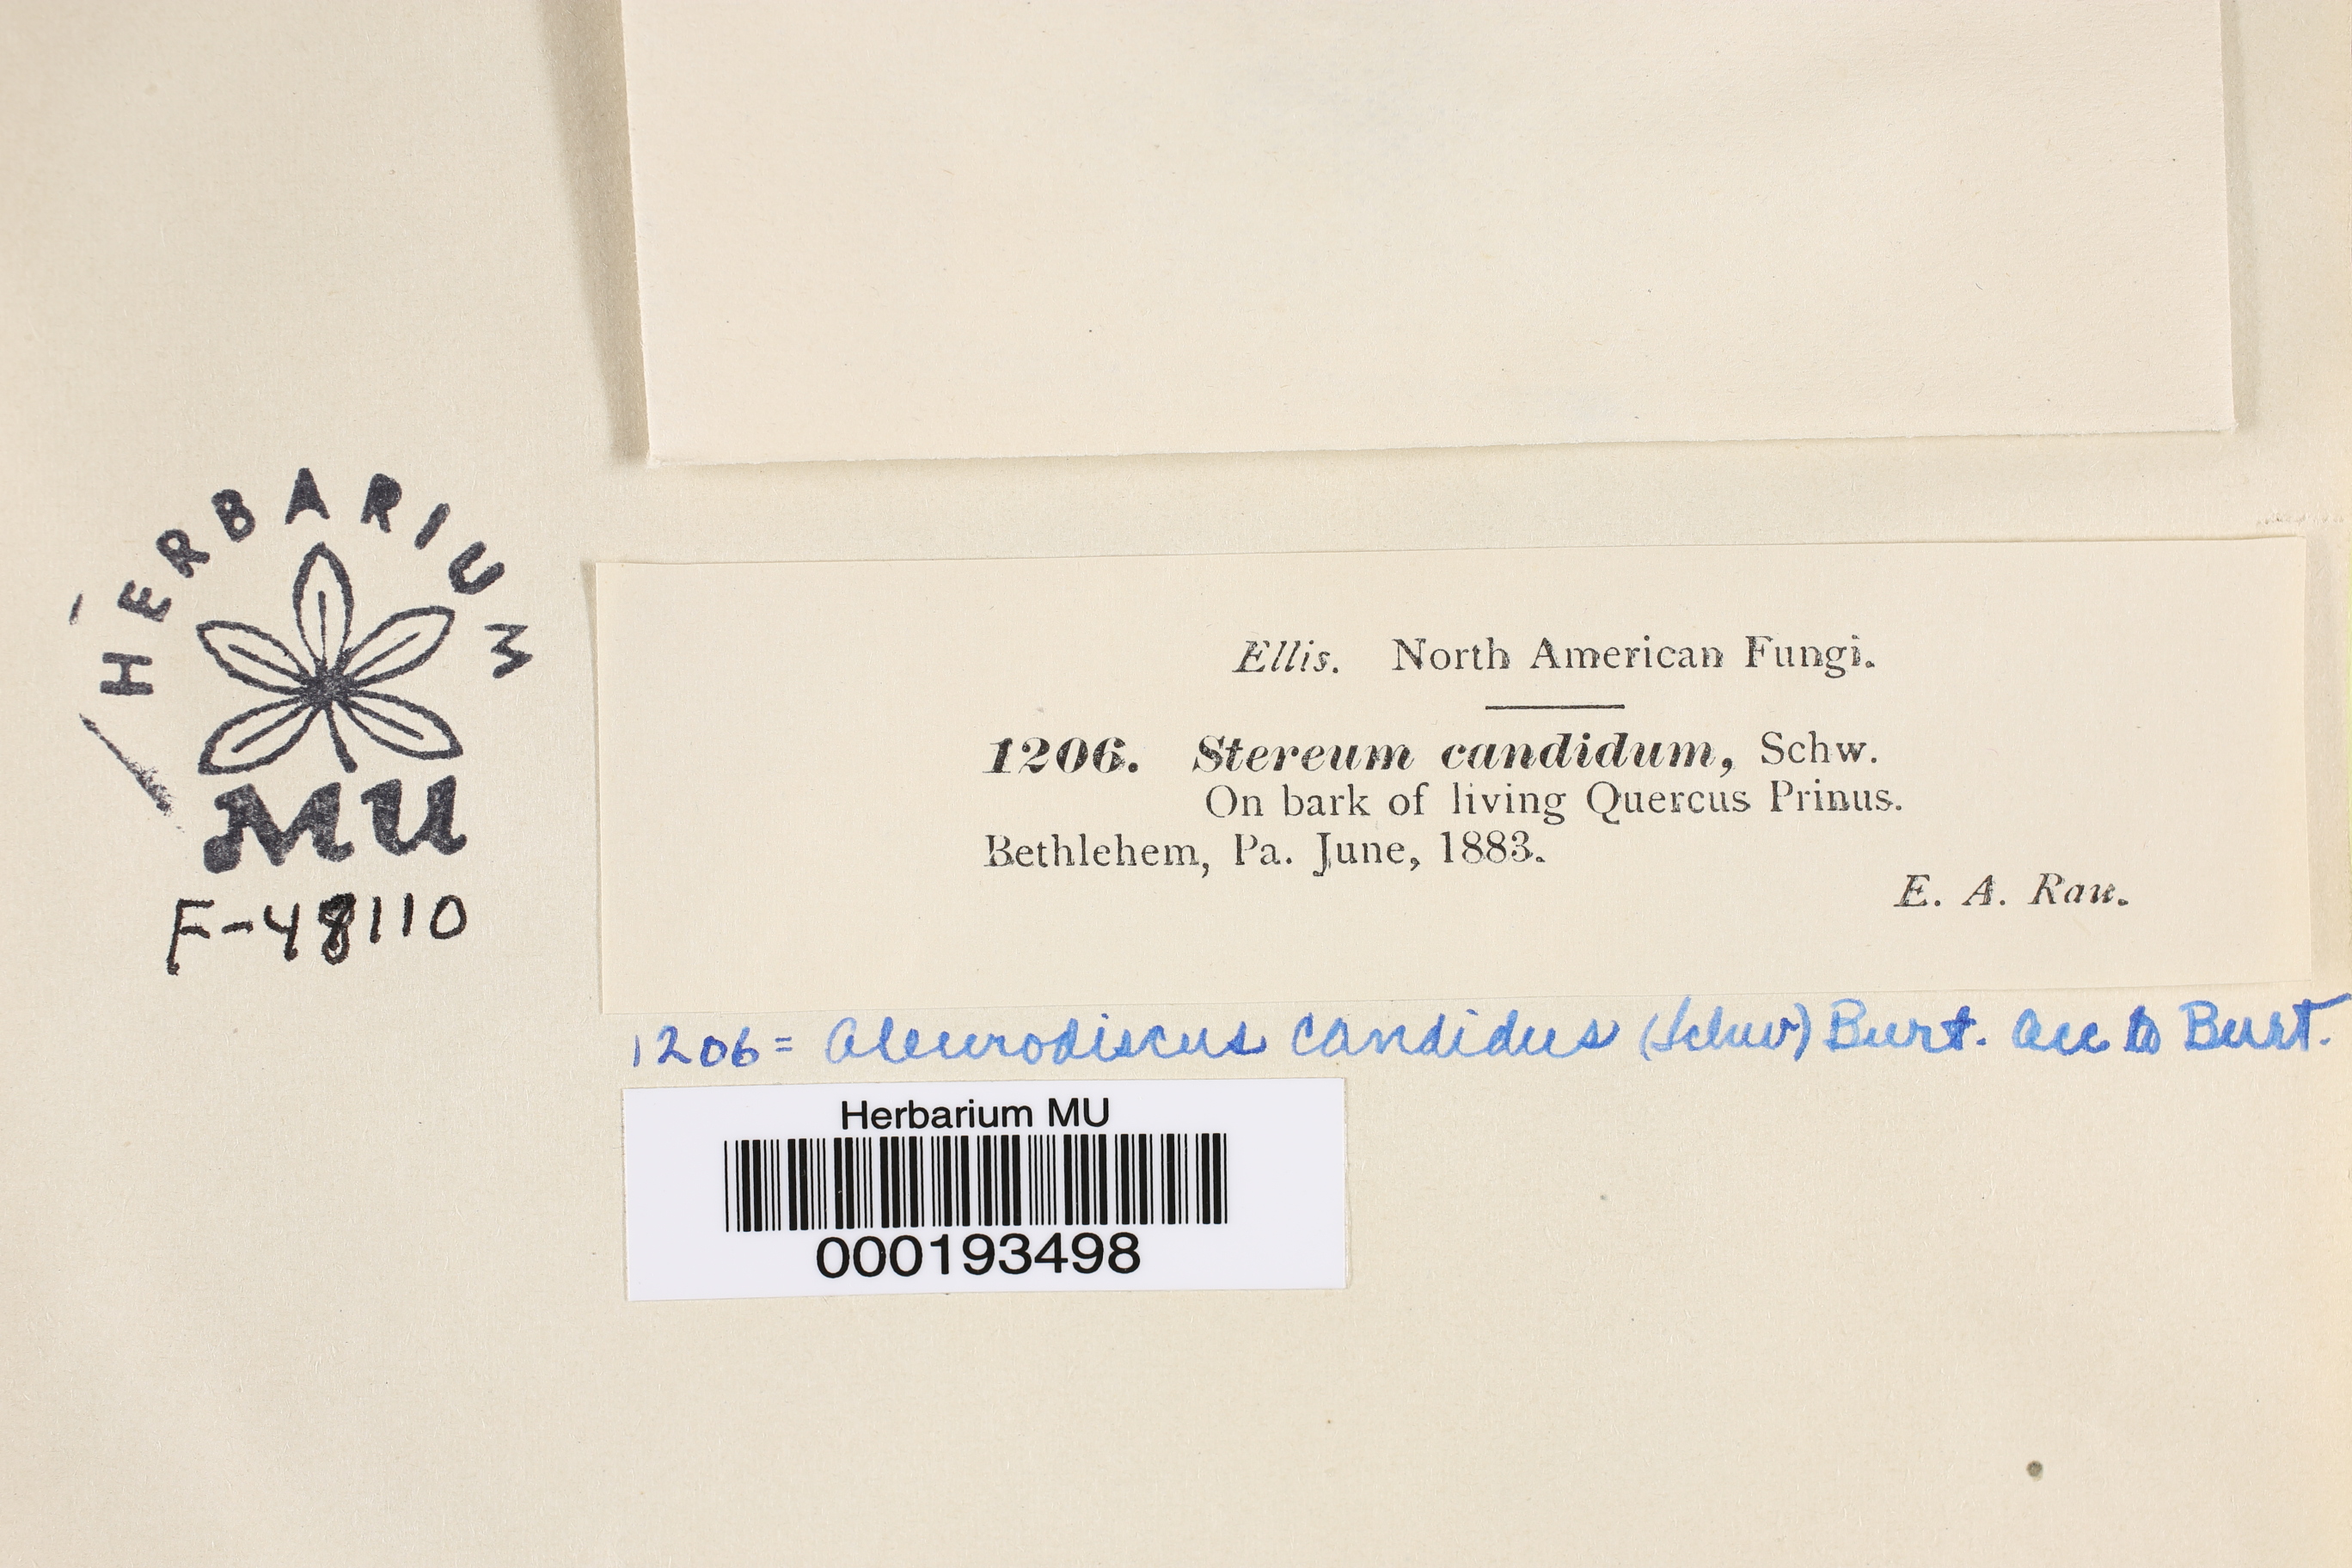 HERBARIUM
MU
F-48110
Ellis. North American Fungi.
1206. Stereum candidum, Schw.
On bark of living Quercus Prinus.
Bethlehem, Pa. June, 1883.
E. A. Rau.
1206 = Aleurodiscus candidus (Schw) Burt. acc to Burt.
Herbarium MU
000193498